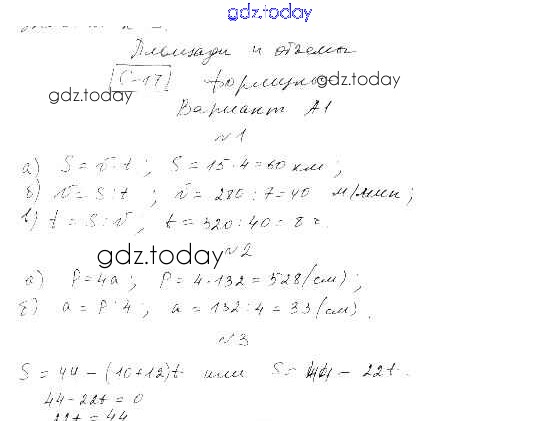 gdz.today
Площади и объемы
С-17 Формулы
gdz.today
gdz.today
Вариант А1
№1
а) S = v·t; S = 15·4 = 60 км;
б) v = S:t; v = 280:7 = 40 м/мин;
в) t = S:v, t = 320:40 = 8 с.
gdz.today
№2
а) P = 4a; P = 4·132 = 528 (см);
б) a = P:4; a = 132:4 = 33 (см).
№3
S = 44 - (10+12)t или S = 44 - 22t.
44 - 22t = 0
22t = 44